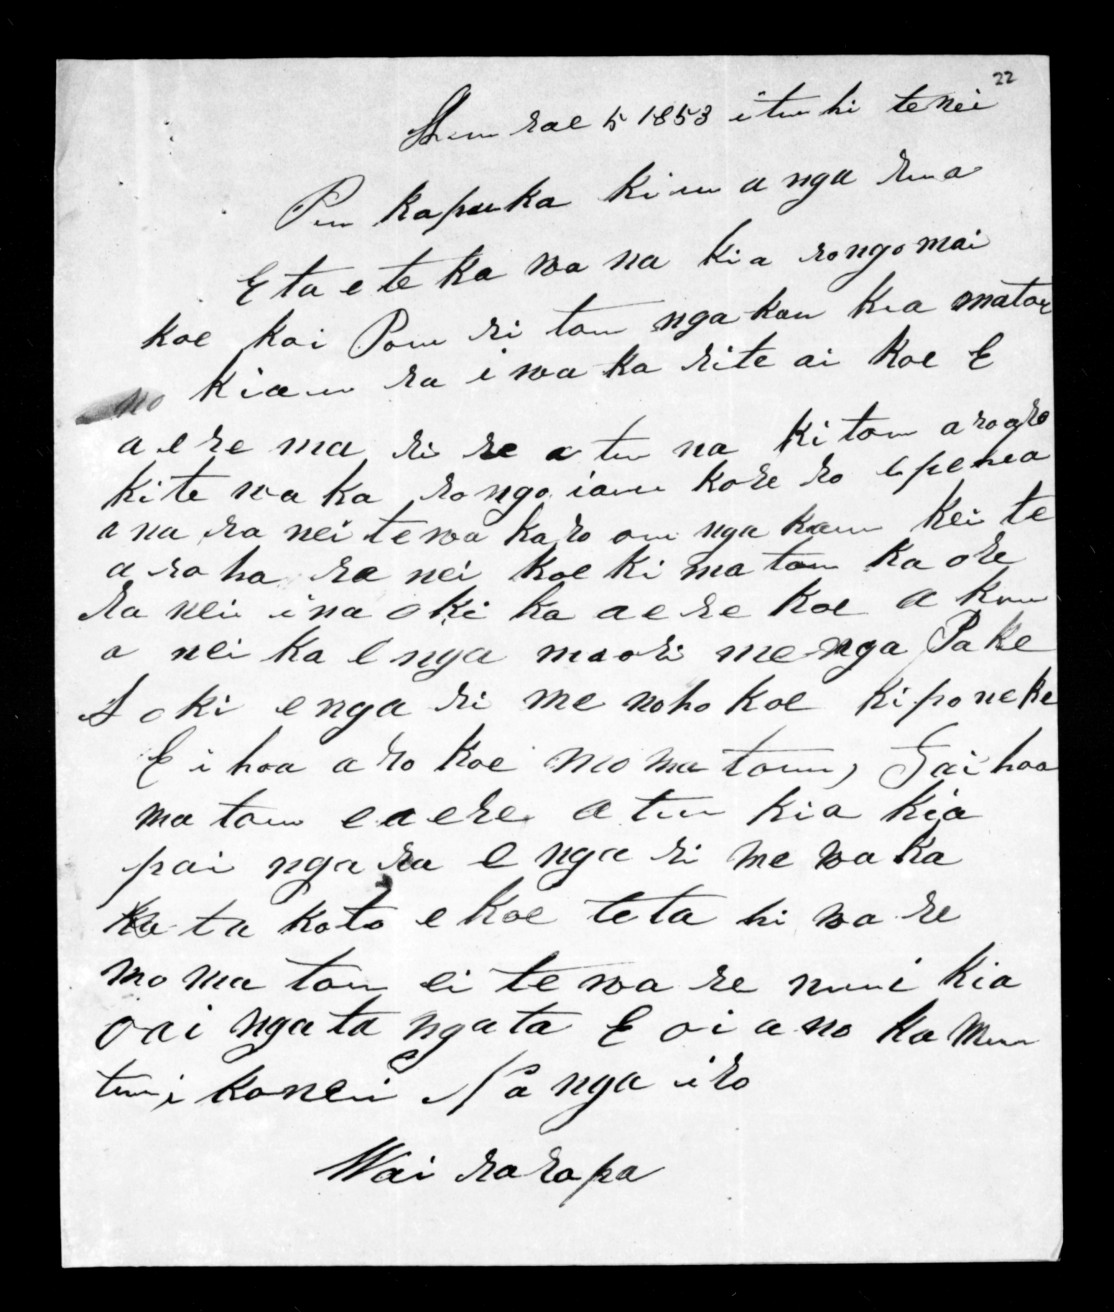 22
Hurae 5 1853 i tuhi tenei
Pukapuka ki u a nga rua
E ta e te kawana kia rongo mai
koe kai Pouri tou ngakau kia matou
no kia u ra i waka rite ai koe E
aere ma ri re atu na ki tou aroaro
ki te waka rongo i au korero e penea
ana ranei te wakaro ou ngakau kei te
aroha ranei koe ki matou kaore
ranei ina oki ka aere koe akuu
a nei ka e nga maori me nga Pake
oki engari me noho koe ki poneke
E ihoa aro koe mo matou, Taihoa
matou e aere atu kia kia
pai nga ra engari me waka
ka takoto e koe tetahi ware
mo matou ei te ware nui kia
o ai nga tangata E oi ano ka mu
tu i konei Na nga iro
Wairarapa